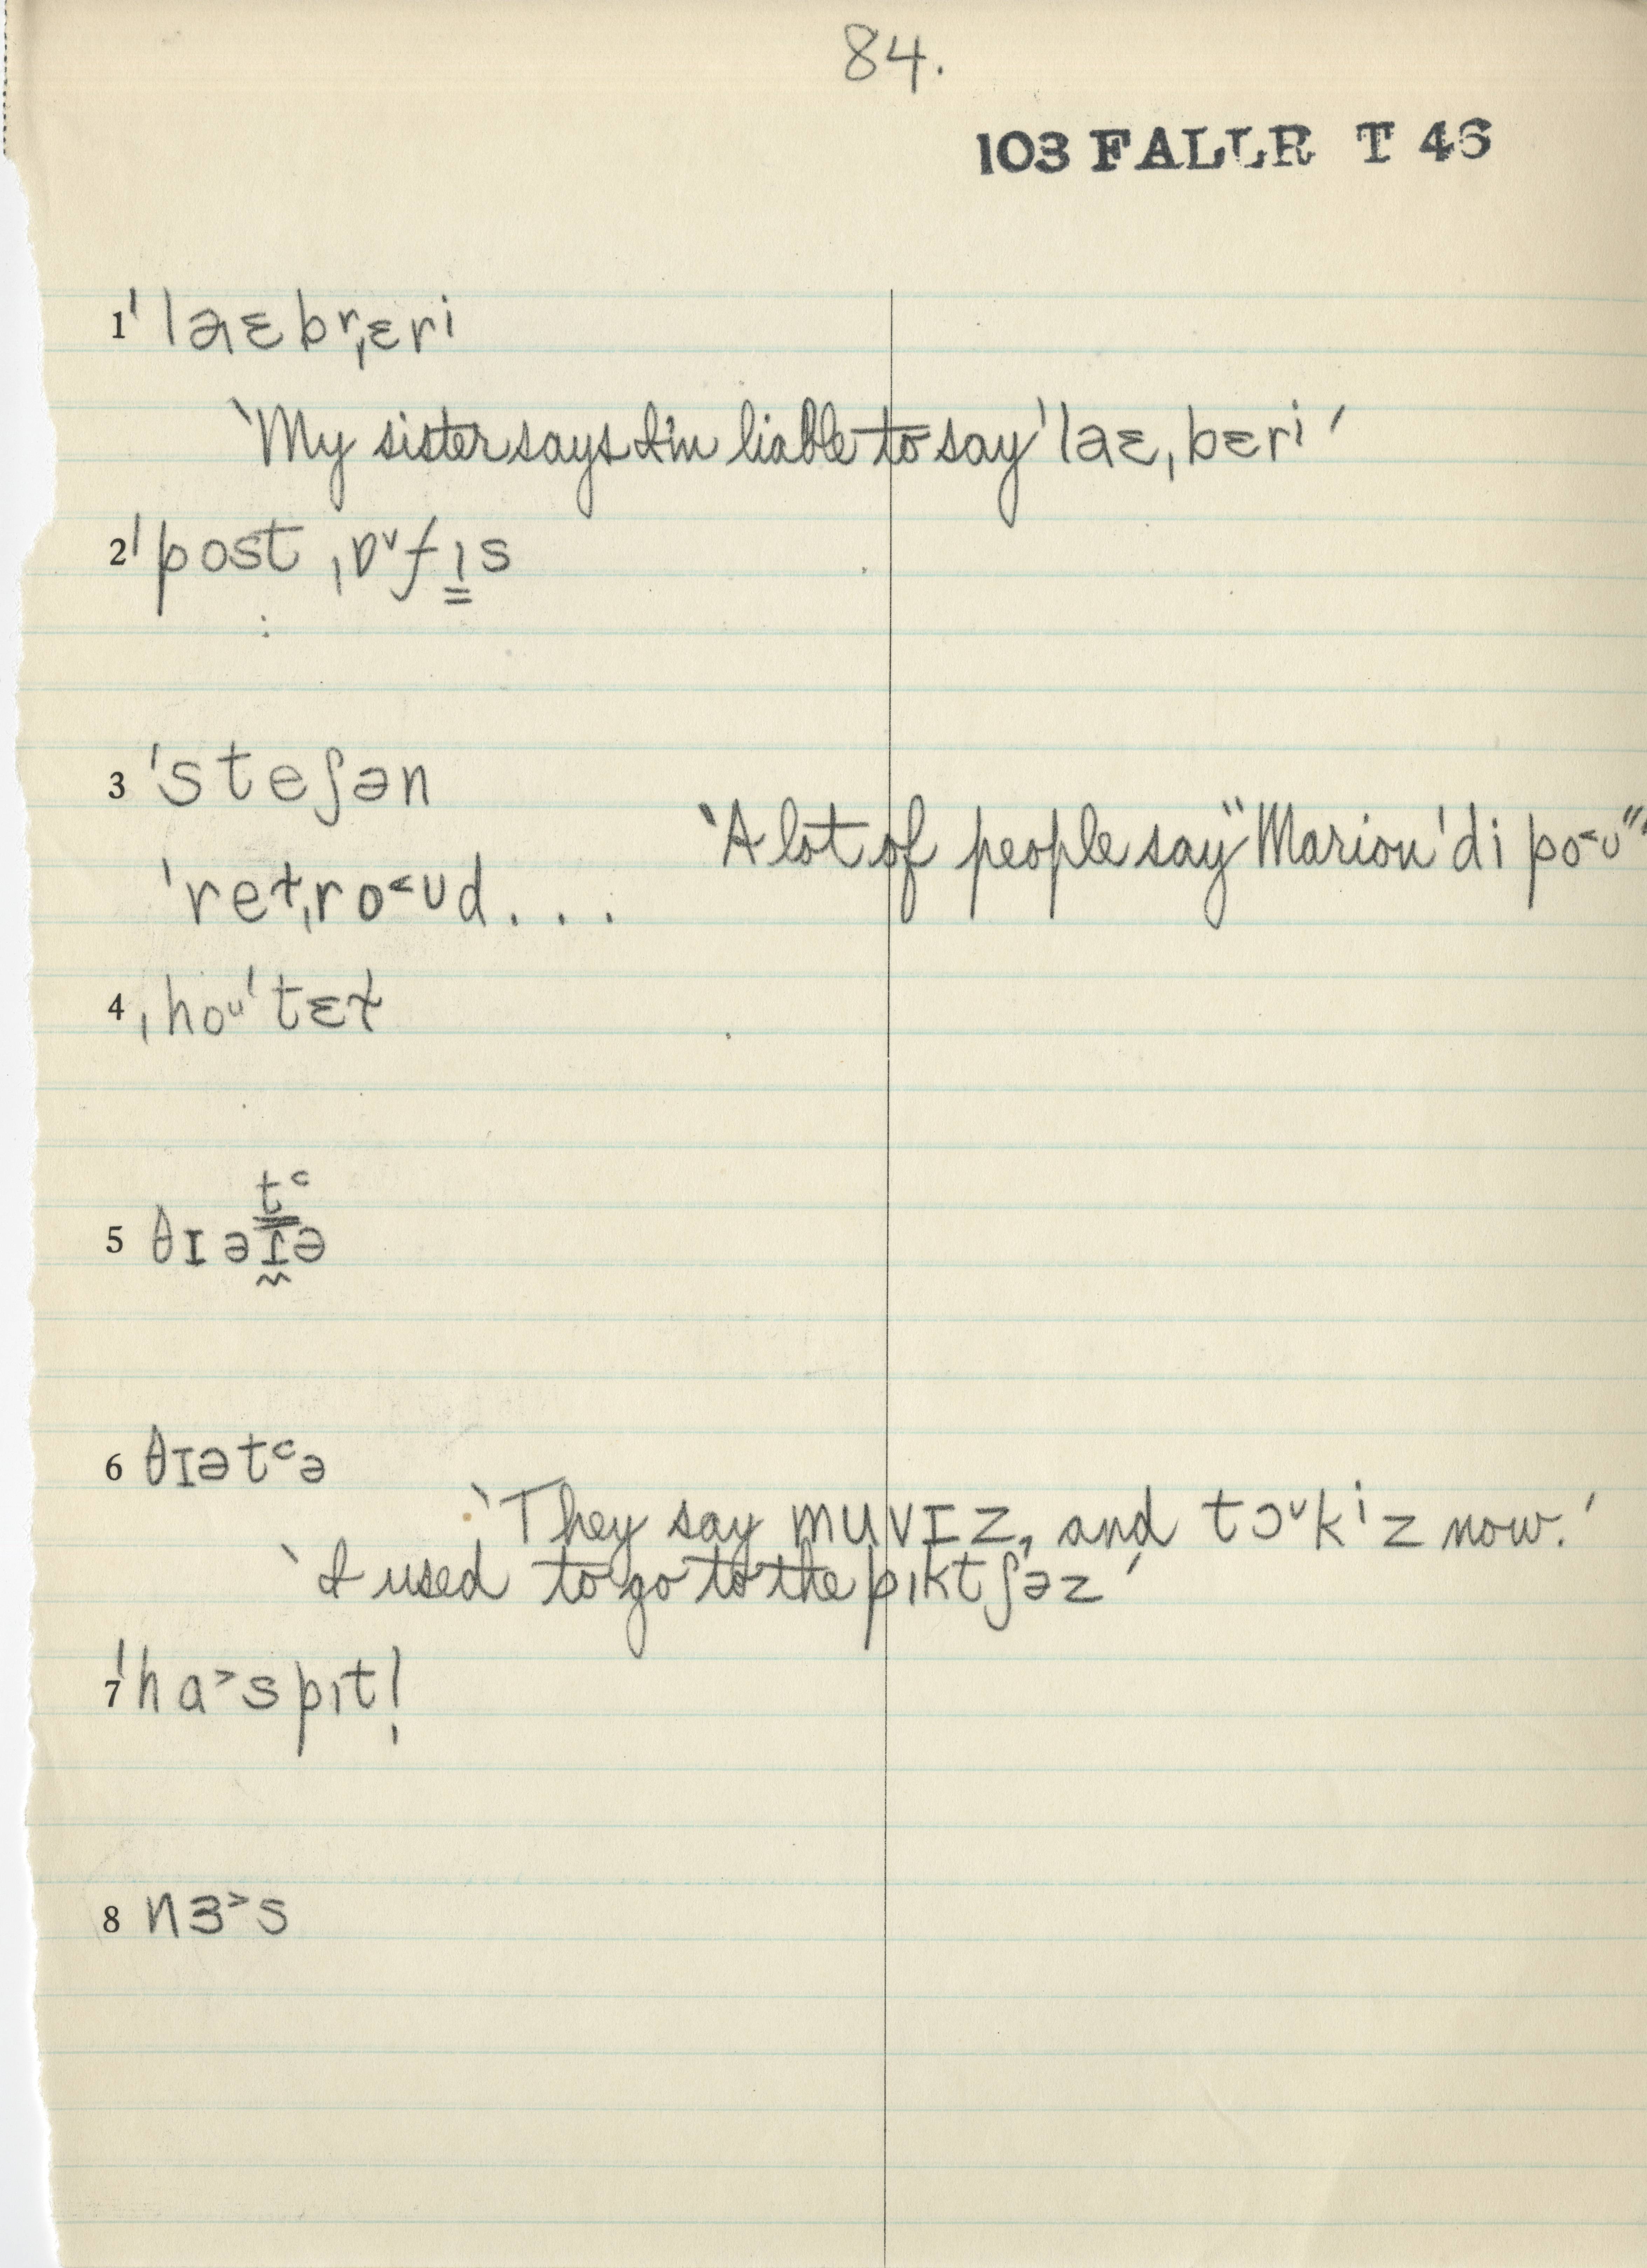 84.
103 FALLR T 46
1 ˈlaɛbrˌɛri
‘My sister says I'm liable to say ˈlaɛˌbɛri’
2 ˈpost ˌɒᵛfɪ̳s
3 ˈsteʃən
‘A lot of people say “Marion ˈdi po˂ᴜ”’
ˈret̬ˌro˂ᴜd...
4 ˌhoᶸˈtɛɫ
tᶜ
5 θɪəɾ̰ə
6 θɪətᶜə
‘They say muvɪz, and tɔᵛkⁱz now.’
‘I used to go to the pɪktʃəz’
7 ˈha˃spɪtl̩
8 nɜ˃s